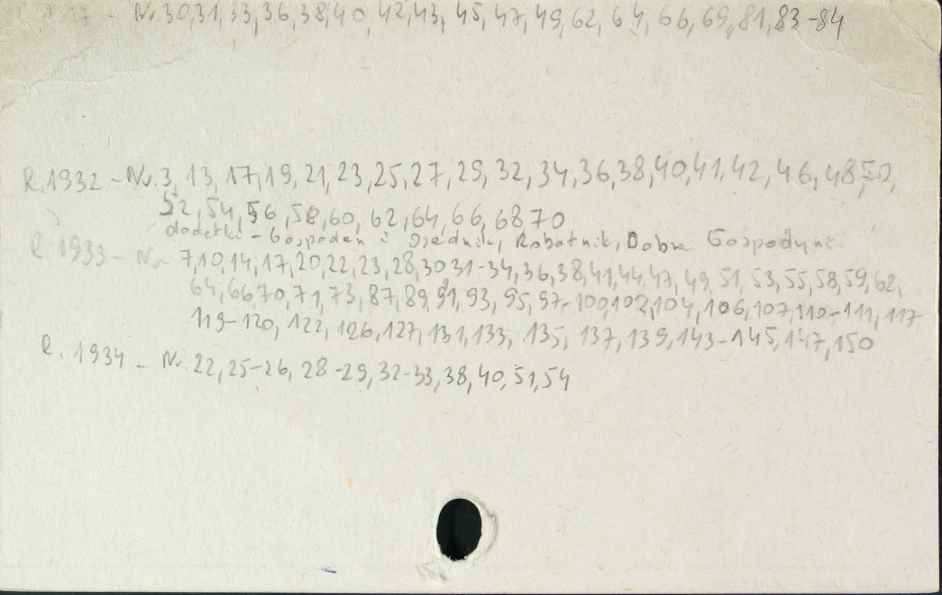 - Nr. 30,31,33,36,38,40, 42,43, 45, 47, 49, 62, 64, 66, 69, 81, 83-84
R. 1932 - Nr. 3, 13, 17, 19, 21, 23, 25, 27, 29, 32, 34, 36, 38, 40, 41, 42, 46, 48, 50,
52, 54, 56, 58, 60, 62, 64, 66, 68 70
dodatki - Gospodarz i Robotnik, Dobra Gospodyni
R. 1933 - Nr. 7, 10, 14, 17, 20, 22, 23, 28, 30 31-34, 36, 38, 41, 44, 47, 49, 51, 53, 55, 58, 59, 62,
64, 66 70, 71, 73, 87, 89, 91, 93, 95, 97-100, 102, 104, 106, 107, 110-111, 117
119-120, 122, 126, 127, 131, 133, 135, 137, 139, 143-145, 147, 150
R. 1934 - Nr. 22, 25-26, 28-29, 32-33, 38, 40, 51, 54